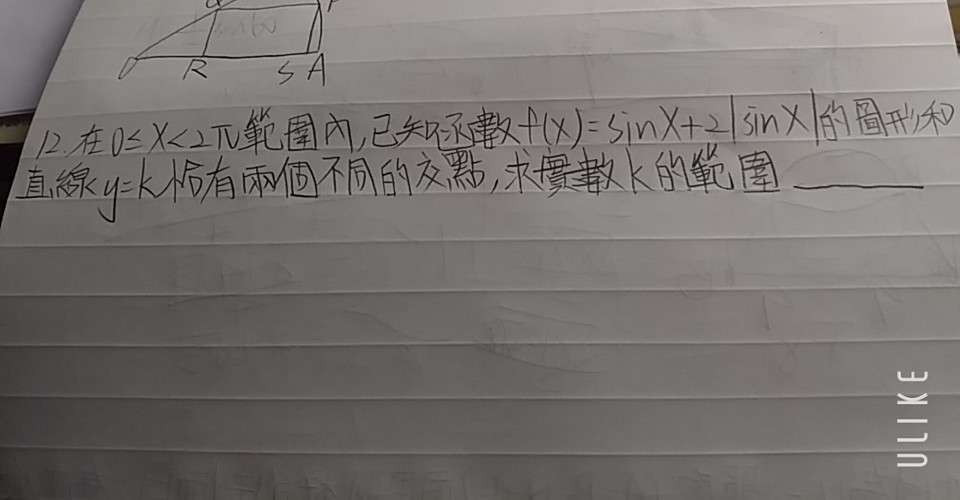 R S A
12. 在 0≤X<2π 範圍內,已知函數 f(x)=sinX+2|sinX| 的圖形和
直線 y=k 恰有兩個不同的交點,求實數 k 的範圍 ______
ULIKE